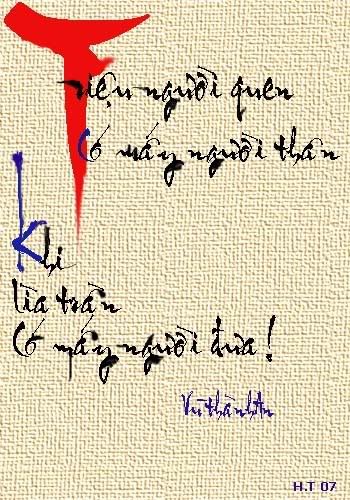 Triệu người quen
Có mấy người thân
Khi
lìa trần
Có mấy người đưa!
Vũ thành An
H.T 07